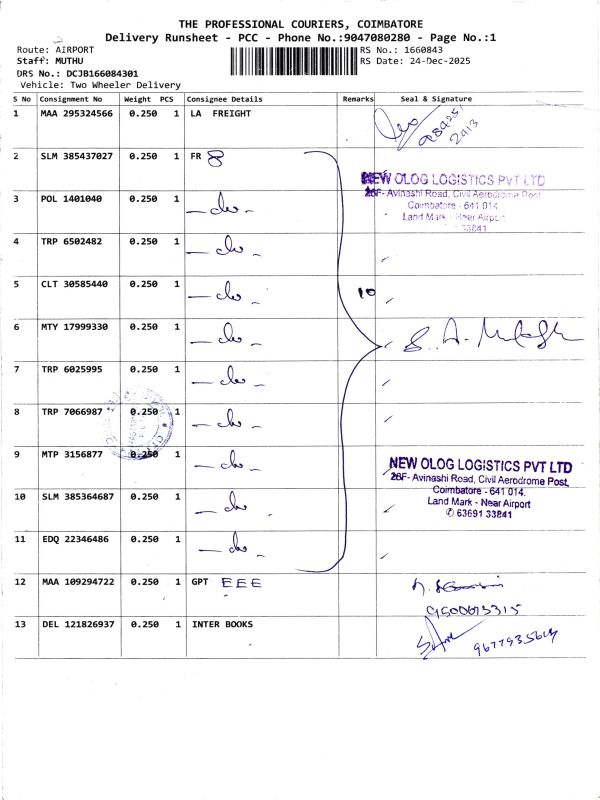 THE PROFESSIONAL COURIERS, COIMBATORE
Delivery Runsheet - PCC - Phone No.:9047080280 - Page No.:1
Route: AIRPORT
RS No.: 1660843
Staff: MUTHU
RS Date: 24-Dec-2025
DRS No.: DCJB166084301
Vehicle: Two Wheeler Delivery
S No Consignment No Weight PCS Consignee Details Remarks Seal & Signature
1 MAA 295324566 0.250 1 LA FREIGHT
2 SLM 385437027 0.250 1 FR 8
NEW OLOG LOGISTICS PVT LTD
28F- Avinashi Road, Civil Aerodrome Post
Coimbatore - 641 014
Land Mark - Near Airport
33841
3 POL 1401040 0.250 1 - do -
4 TRP 6502482 0.250 1 - do -
5 CLT 30585440 0.250 1 - do - 10
6 MTY 17999330 0.250 1 - do -
7 TRP 6025995 0.250 1 - do -
8 TRP 7066987 0.250 1 - do -
9 MTP 3156877 0.250 1 - do -
NEW OLOG LOGISTICS PVT LTD
28F- Avinashi Road, Civil Aerodrome Post,
Coimbatore - 641 014.
Land Mark - Near Airport
✆ 63691 33841
10 SLM 385364687 0.250 1 - do -
11 EDQ 22346486 0.250 1 - do -
12 MAA 109294722 0.250 1 GPT EEE
13 DEL 121826937 0.250 1 INTER BOOKS